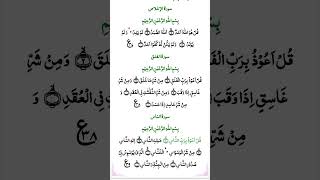 سورة الإخلاص
بِسْمِ اللهِ الرَّحْمٰنِ الرَّحِيْمِ
قُلْ هُوَ اللهُ اَحَدٌ ۝ اَللهُ الصَّمَدُ ۝ لَمْ يَلِدْ ۙ وَلَمْ
يُوْلَدْ ۝ وَلَمْ يَكُنْ لَّهٗ كُفُوًا اَحَدٌ ۝
سورة الفلق
بِسْمِ اللهِ الرَّحْمٰنِ الرَّحِيْمِ
قُلْ اَعُوْذُ بِرَبِّ الْفَلَقِ ۝ مِنْ شَرِّ مَا خَلَقَ ۝ وَ مِنْ شَرِّ
غَاسِقٍ اِذَا وَقَبَ ۝ وَ مِنْ شَرِّ النَّفّٰثٰتِ فِي الْعُقَدِ ۝ وَ
مِنْ شَرِّ حَاسِدٍ اِذَا حَسَدَ ۝
سورة الناس
بِسْمِ اللهِ الرَّحْمٰنِ الرَّحِيْمِ
قُلْ اَعُوْذُ بِرَبِّ النَّاسِ ۝ مَلِكِ النَّاسِ ۝ اِلٰهِ النَّاسِ
۝ مِنْ شَرِّ الْوَسْوَاسِ ۙ الْخَنَّاسِ ۝ الَّذِيْ يُوَسْوِسُ فِيْ
صُدُوْرِ النَّاسِ ۝ مِنَ الْجِنَّةِ وَ النَّاسِ ۝